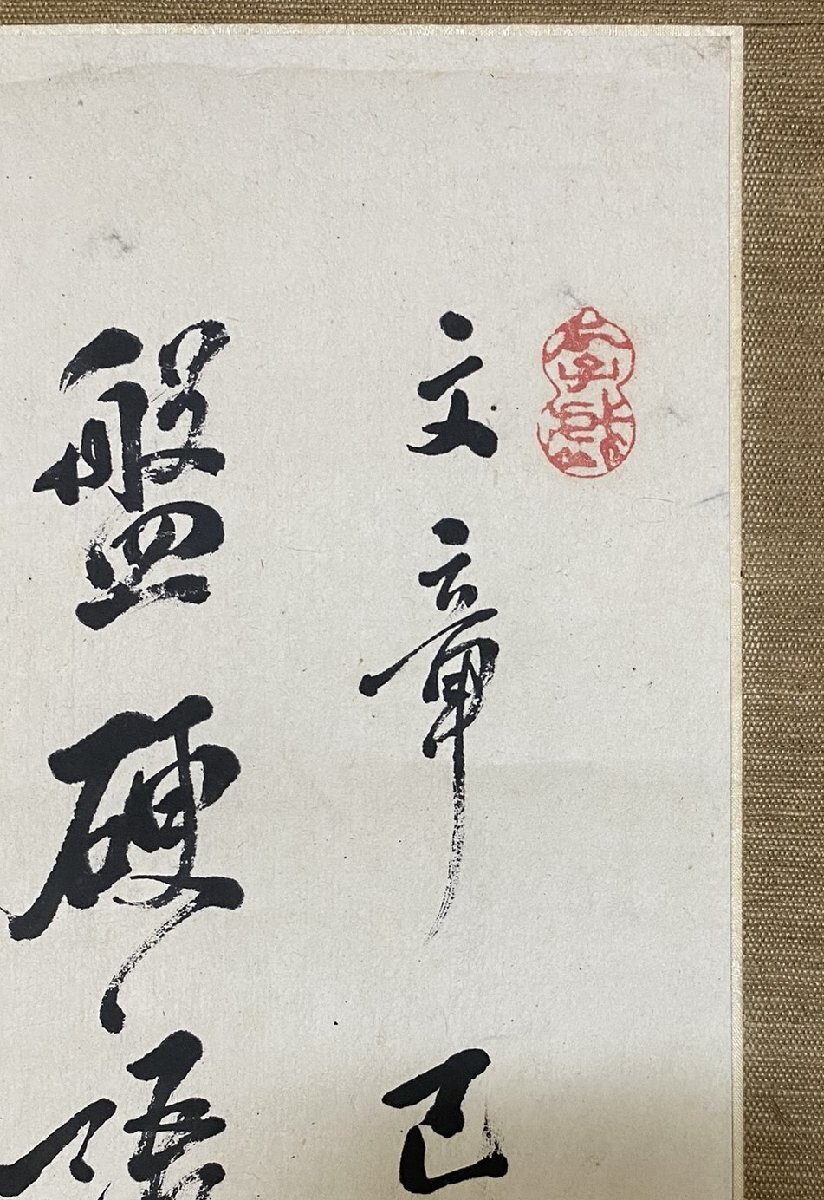 文章已
盤硬語